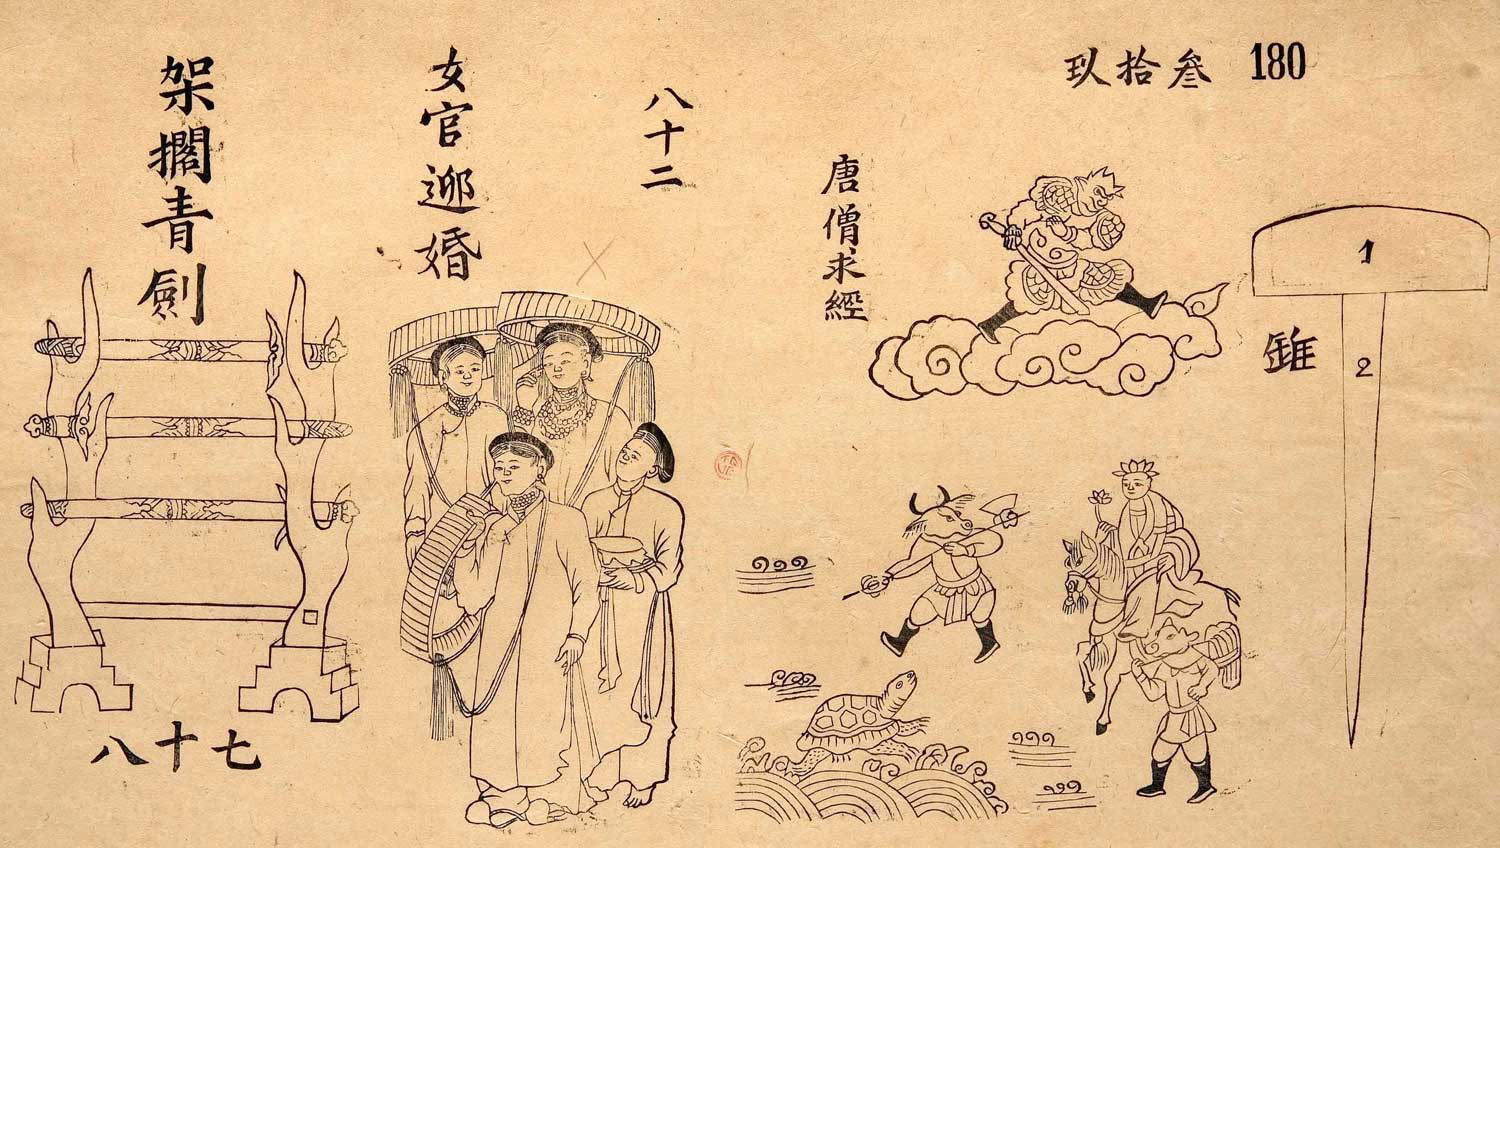 架擱青劍
八十七
女官迎婚
八十二
玖拾叄 180
唐僧求經
1
錐
2